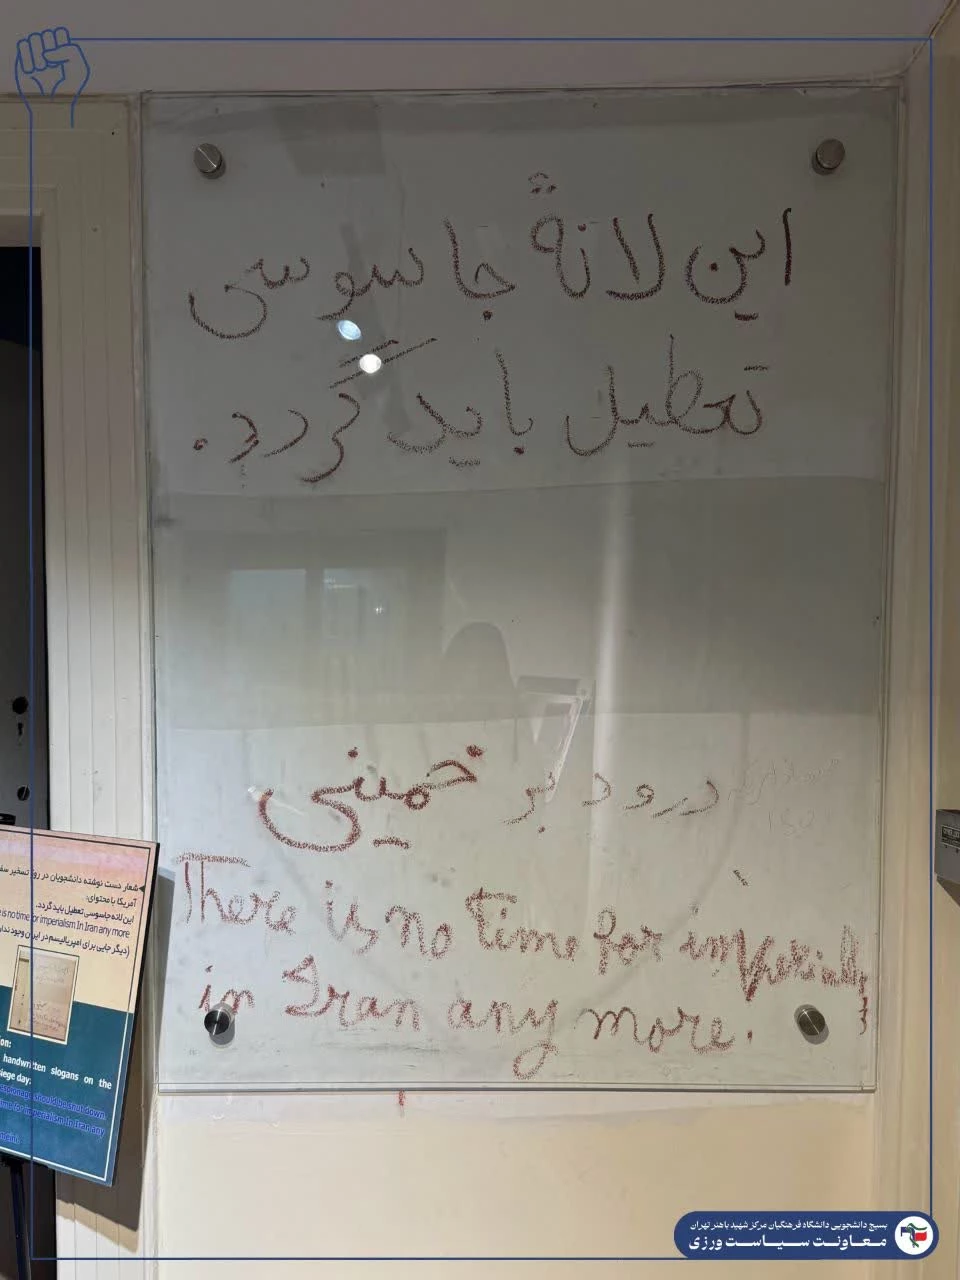 این لانهٔ جاسوسی
تعطیل باید گردد.
درود بر خمینی
There is no time for imperialism
in Iran any more.
شعار دست نوشته دانشجویان در روز تسخیر
آمریکا با محتوای:
این لانه جاسوسی تعطیل باید گردد.
is no time for imperialism In Iran any more
(دیگر جایی برای امپریالیسم در ایران وجود
on:
handwritten slogans on the
siege day:
espionage should be shut down.
time for imperialism In Iran any
بسیج دانشجویی دانشگاه فرهنگیان مرکز شهید باهنر تهران
معاونت سیاست ورزی